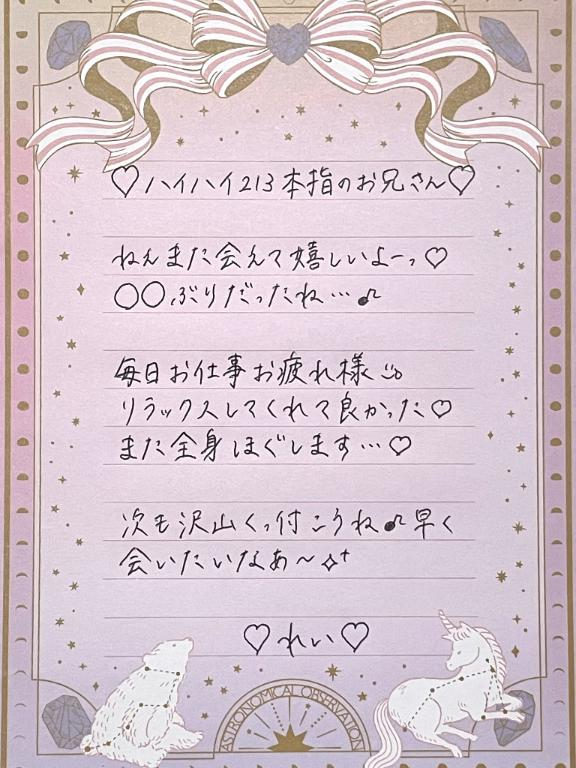 ♡ハイハイ213本指のお兄さん♡
ねえまた会えて嬉しいよーっ♡
〇〇ぶりだったね…♪
毎日お仕事お疲れ様
リラックスしてくれて良かった♡
また全身ほぐします…♡
次も沢山くっ付こうね♪早く
会いたいなあ〜✧+
♡れい♡
ASTRONOMICAL OBSERVATION